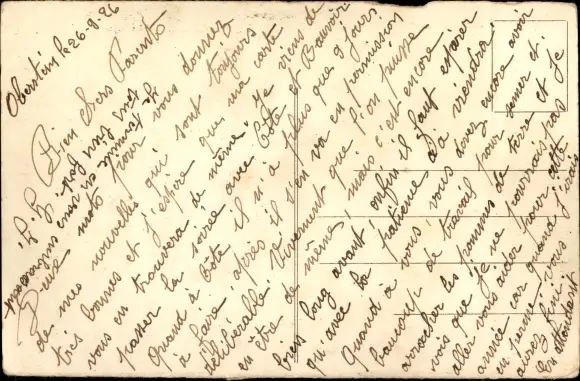 Oberstein le 26-8-26
Bien chers Parents
Deux mots pour vous donnez
de mes nouvelles qui sont toujours
très bonnes et j'espère que ma carte
vous en trouvera de même. Je viens de
passer la soirée avec Côte et Bauvoir
Quand à Côte il n'a plus que 9 jours
à faire, après il s'en va en permission
délibérable. Vivement que l'on puisse
en être de même, mais c'est encore
bien long avant, enfin il faut espérer
qu'avec la patience ça viendra.
Quand à vous, vous devez encore avoir
beaucoup de travail pour semer et
arracher les pommes de terre et je
vois que je ne pourrais pas
aller vous aider pour cette
année car quand j'irais
en perme vous
aurez fini
En attendant